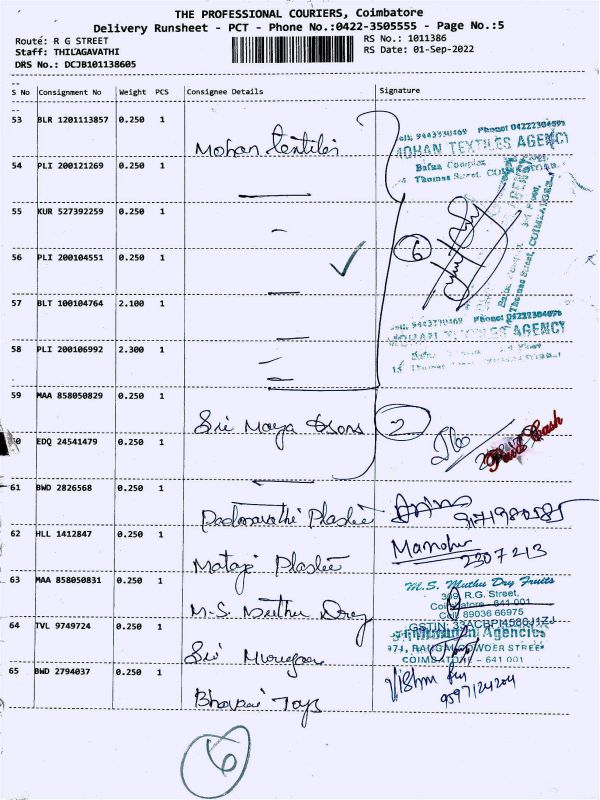 THE PROFESSIONAL COURIERS, Coimbatore
Delivery Runsheet - PCT - Phone No.:0422-3505555 - Page No.:5
Route: R G STREET
RS No.: 1011386
Staff: THILAGAVATHI
RS Date: 01-Sep-2022
DRS No.: DCJB101138605
S No Consignment No Weight PCS Consignee Details Signature
53 BLR 1201113857 0.250 1
Mohan textiles
Cell: 9443330469 Phone: 04222304098
MOHAN TEXTILES AGENCY
Bafna Complex
Thomas Street, COIMBATORE
54 PLI 200121269 0.250 1
55 KUR 527392259 0.250 1
6
56 PLI 200104551 0.250 1 ✓
57 BLT 100104764 2.100 1
Cell: 9443330469 Phone: 04222304098
MOHAN TEXTILES AGENCY
58 PLI 200106992 2.300 1
59 MAA 858050829 0.250 1
Sri Maya & sons 2
60 EDQ 24541479 0.250 1
Paid Cash
61 BWD 2826568 0.250 1
Padmavathi Plastic
62 HLL 1412847 0.250 1
Mataji Plastic
Manohar
2307213
63 MAA 858050831 0.250 1
M.S. Muthu Dry
M.S. Muthu Dry Fruits
309, R.G. Street,
Coimbatore - 641 001
Cell: 89036 66975
64 TVL 9749724 0.250 1
Sri Murugan
Agencies
COIMBATORE - 641 001
65 BWD 2794037 0.250 1
Bhavani Toys
9597124204
6